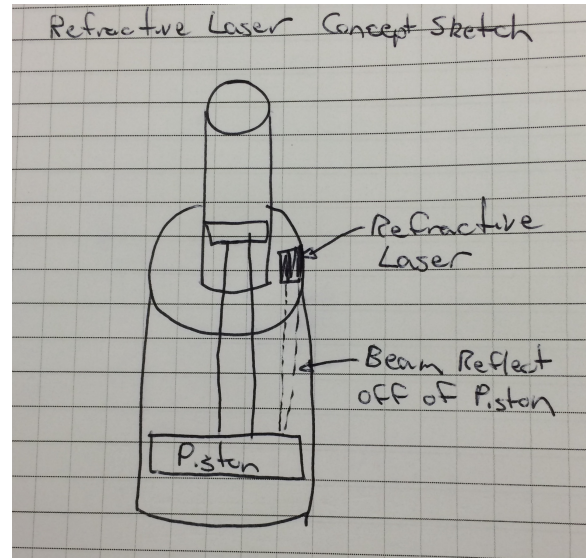 Refractive Laser Concept Sketch
Refractive
Laser
Beam Reflect
off of Piston
Piston